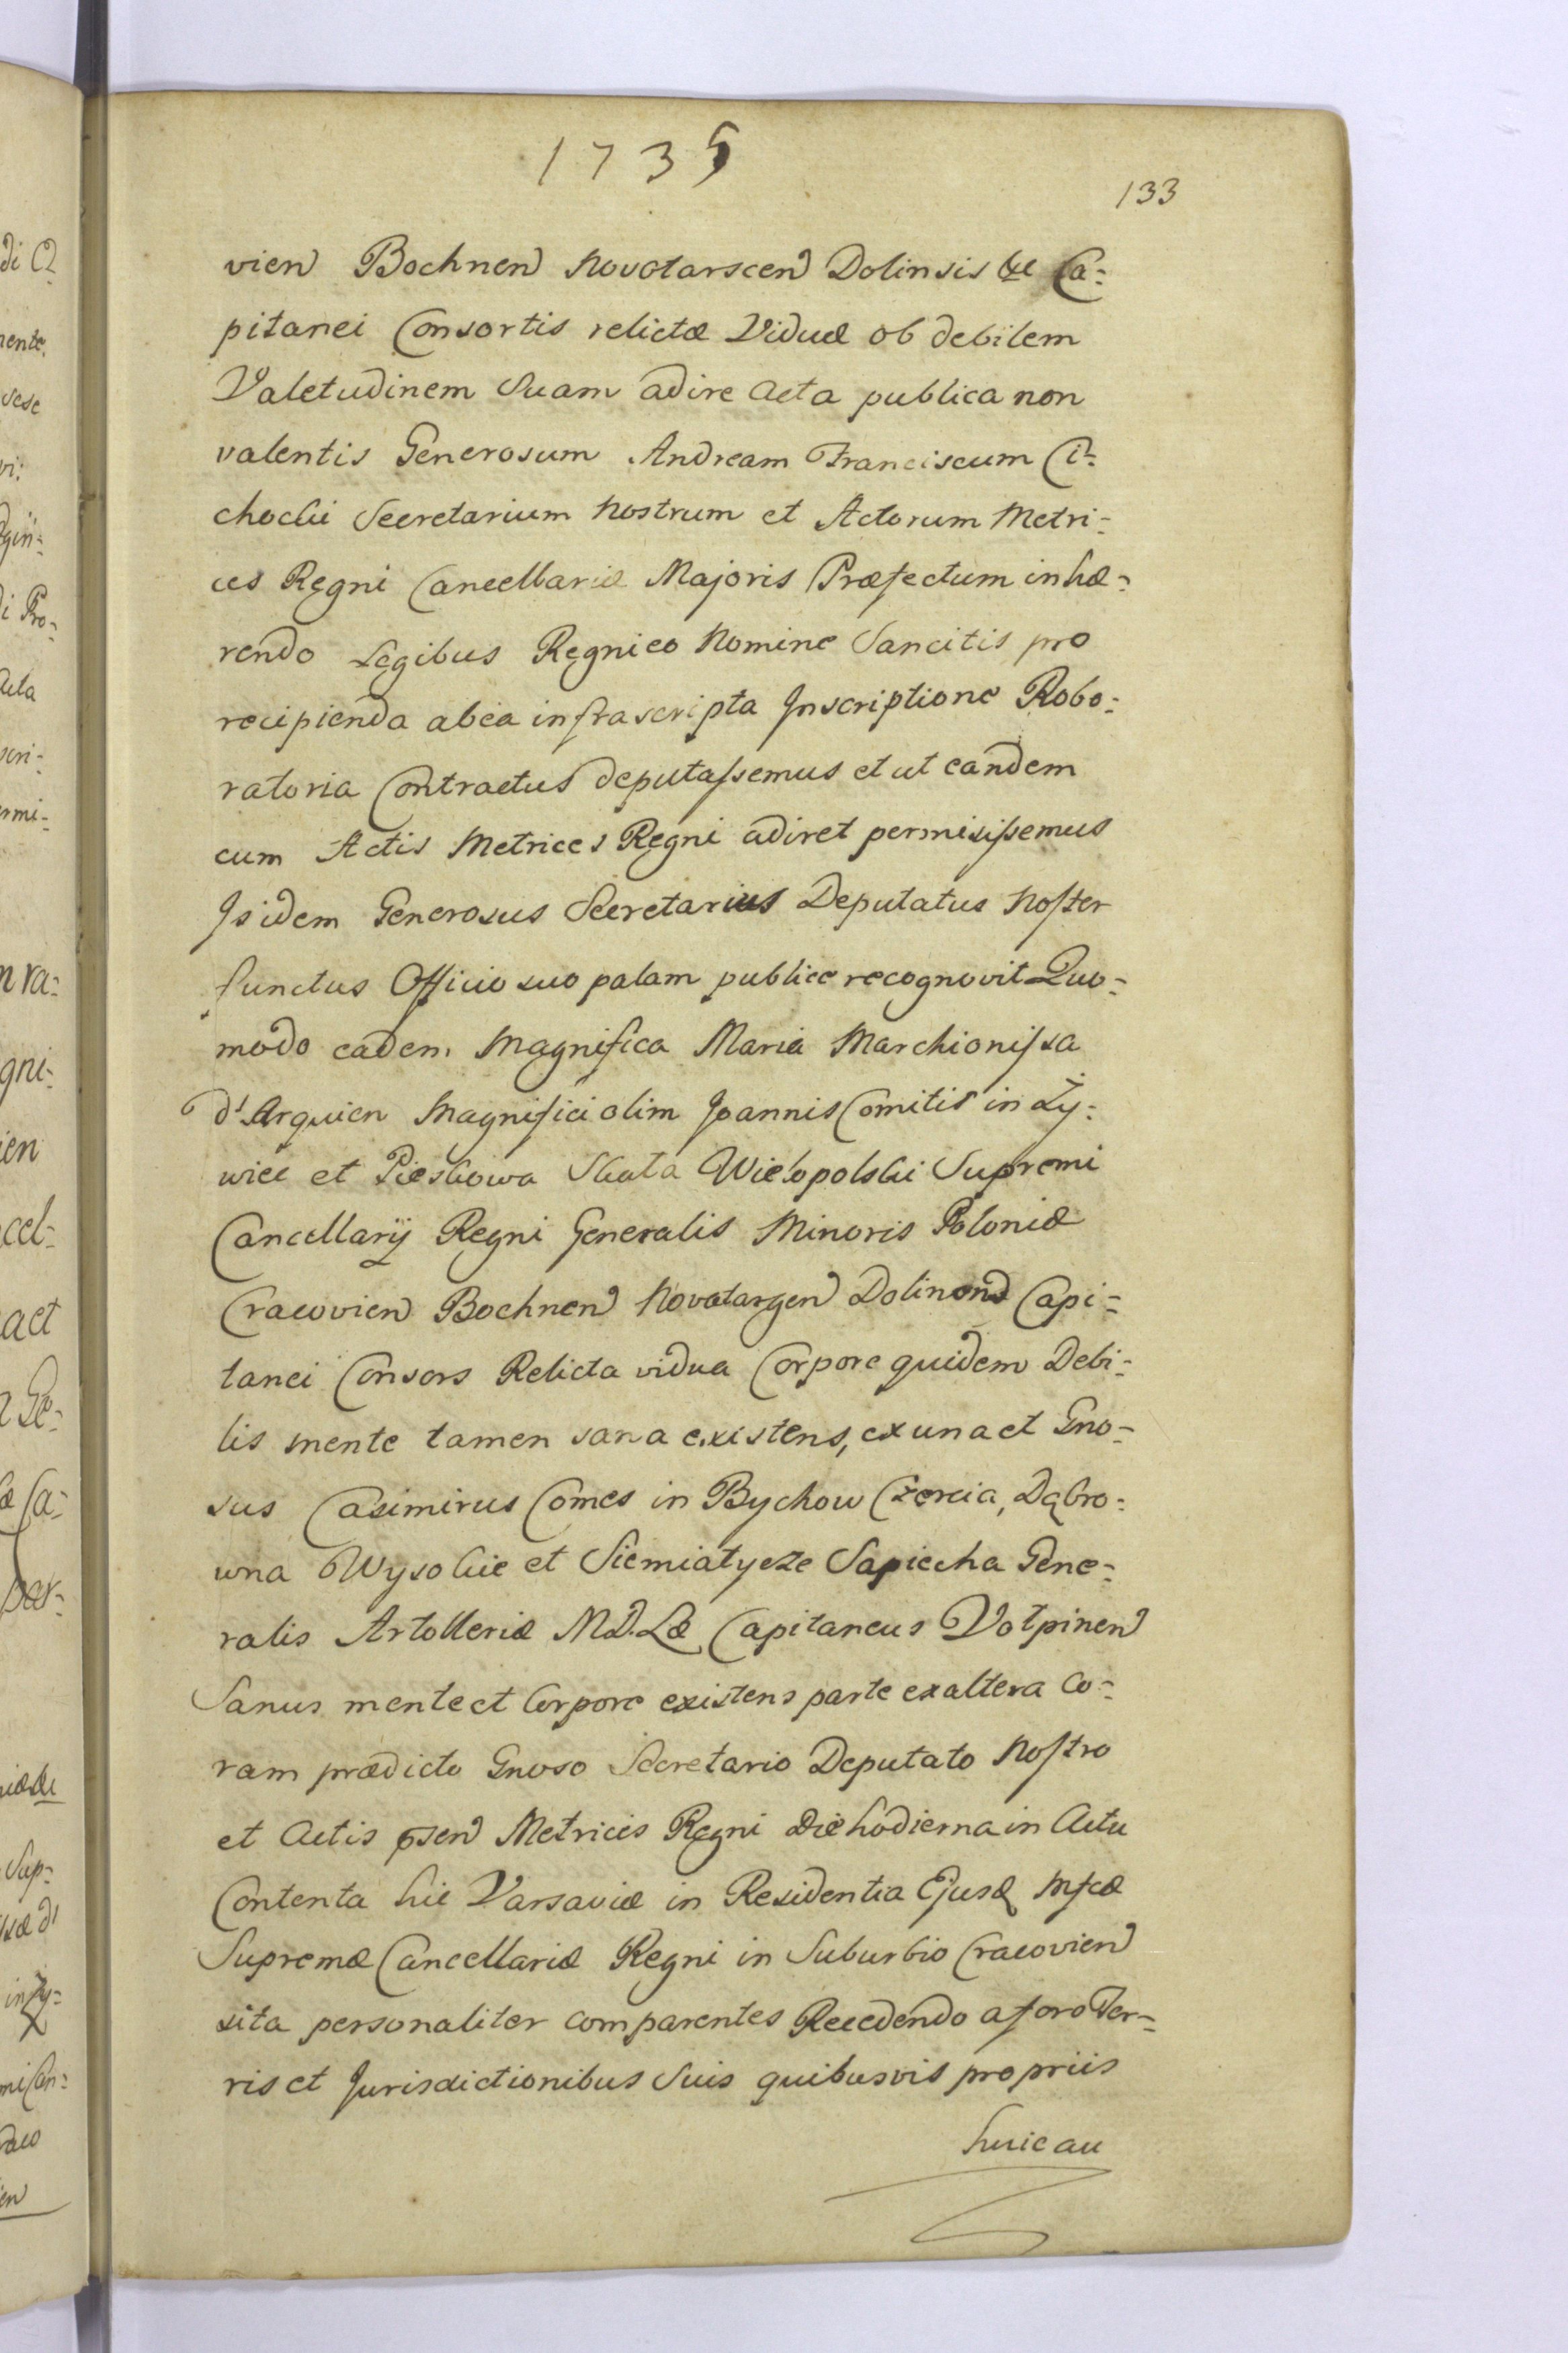 1735
133
vien Bochnen Novotarscen Dolinsis &c Ca=
pitanei Consortis relictæ Viduæ ob debilem
Valetudinem Suam adire Acta publica non
valentis Generosum Andream Franciscum Ci=
chocki Secretarium Nostrum et Actorum Metri=
ces Regni Cancellariæ Majoris Præfectum inhæ=
rendo Legibus Regni eo Nomine Sancitis pro
recipienda ab ea infrascripta Inscriptione Robo=
ratoria Contractus deputassemus et ut eandem
cum Actis Metrices Regni adiret permisissemus
Is idem Generosus Secretarius Deputatus Noster
functus Officio suo palam publice recognovit Quo=
modo eadem Magnifica Maria Marchionissa
d'Arquien Magnifici olim Joannis Comitis in Ży=
wiec et Pieskowa Skała Wielopolski Supremi
Cancellarij Regni Generalis Minoris Poloniæ
Cracovien Bochnen Novotargen Dolinen Capi=
tanei Consors Relicta vidua Corpore quidem Debi=
lis mente tamen sana existens, ex una et Gno=
sus Casimirus Comes in Bychow Czereia, Dąbro=
wna Wysokie et Siemiatycze Sapiecha Gene=
ralis Artolleriæ M.D.Læ Capitaneus Wołpinen
Sanus mente et Corpore existens parte ex altera Co=
ram prædicto Gnoso Secretario Deputato Nostro
et Actis psen Metrices Regni die hodierna in Actu
Contenta hic Varsaviæ in Residentia Ejusd Mfcæ
Supremæ Cancellariæ Regni in Suburbio Cracovien
sita personaliter comparentes Recedendo a foro Ter=
ris et Jurisdictionibus Suis quibusvis propriis
huic au